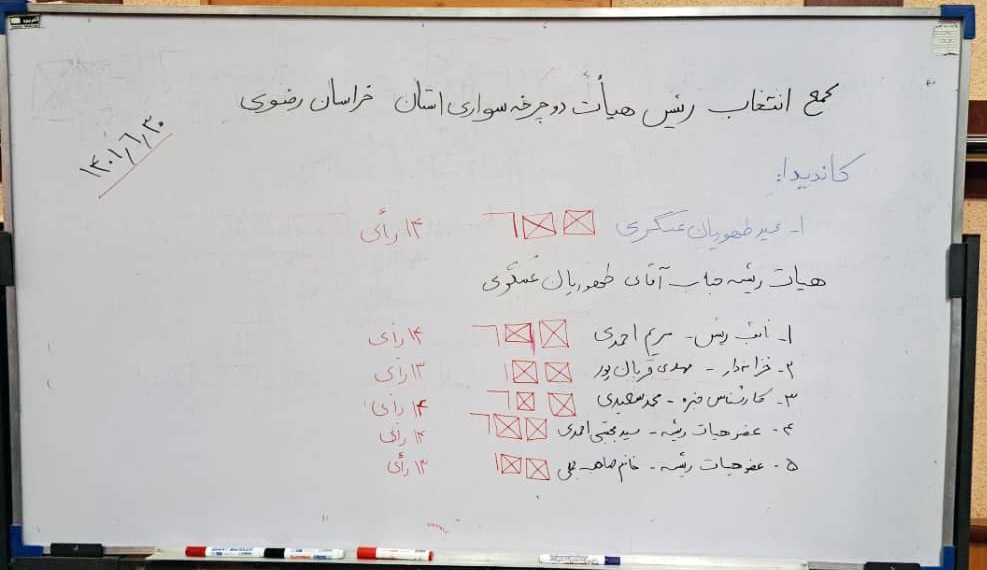 مجمع انتخاب رئیس هیأت دوچرخه سواری استان خراسان رضوی
۱۴۰۱/۶/۳۰
کاندیدا:
۱- مجید طهوریان عسگری ۱۴ رأی
هیات رئیسه جناب آقای طهوریان عسگری
۱- نائب رئیس - مریم احمدی ۱۴ رأی
۲- خزانه‌دار - مهدی قربان پور ۱۳ رأی
۳- کارشناس خبره - محمد سعیدی ۱۴ رأی
۴- عضو هیات رئیسه - سید مجتبی احمدی ۱۴ رأی
۵- عضو هیات رئیسه - خانم ۱۳ رأی